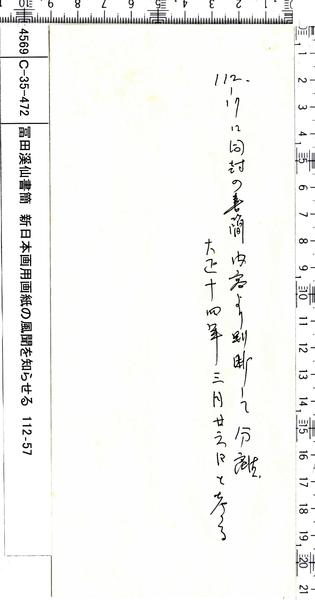 112-17に同封の書簡内容より判断して分離。
大正十四年三月廿六日と考る
4569 C-35-472 冨田溪仙書簡 新日本画用画紙の風聞を知らせる 112-57